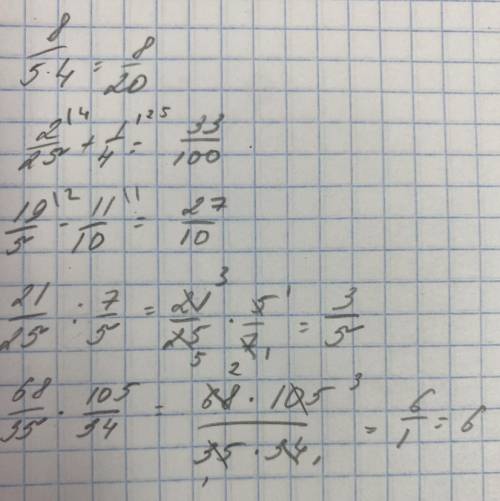 8/(5·4) = 8/20
2/25 |4 + 1/4 |25 = 33/100
19/5 |2 - 11/10 |1 = 27/10
21/25 · 7/5 = 21/25 · 5/7 = 3/5 3 5 1 1
68/35 · 105/34 = (68 · 105)/(35 · 34) = 6/1 = 6 2 3 1 1